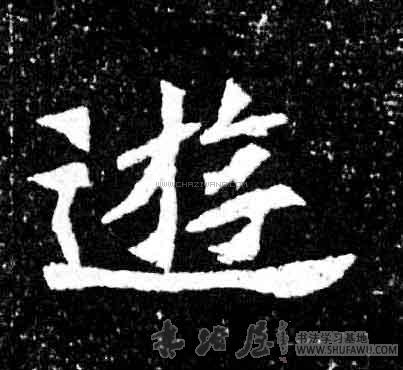 遊
WWW.CHAZIDIAN.COM
书法学习基地
WWW.SHUFAWU.COM